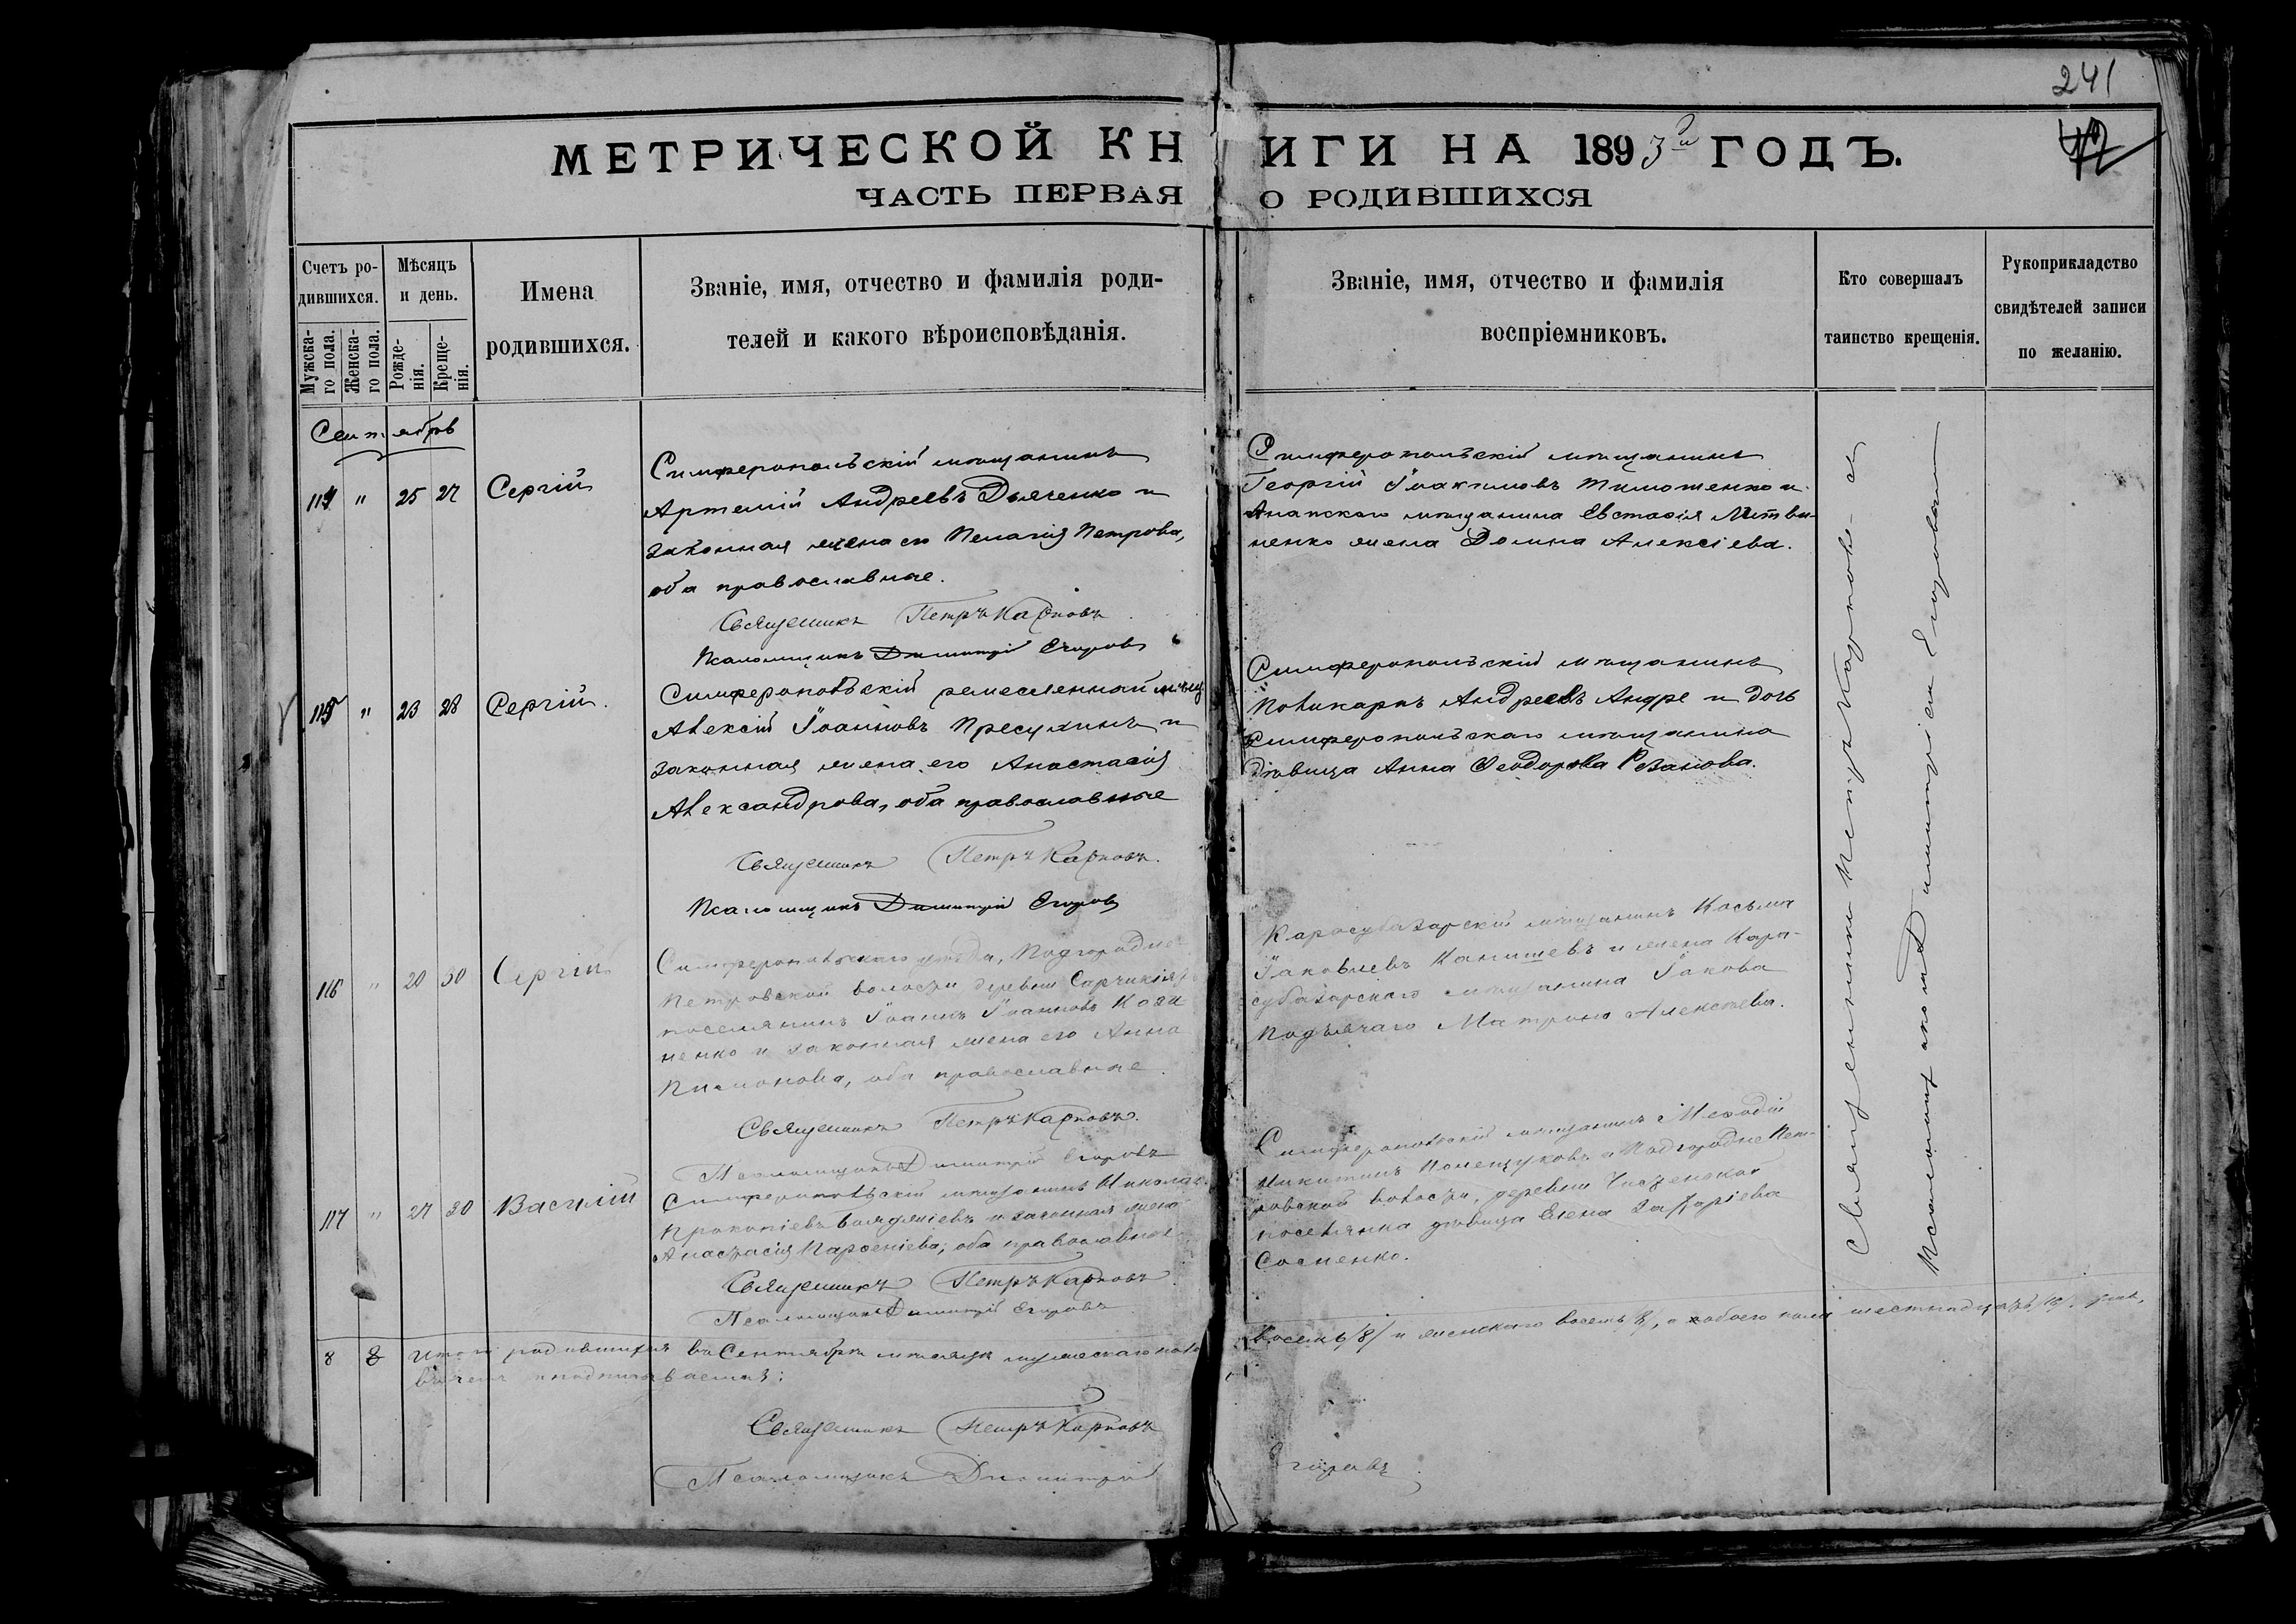 241
42
МЕТРИЧЕСКОЙ КНИГИ НА 1893й ГОДЪ.
ЧАСТЬ ПЕРВАЯ О РОДИВШИХСЯ
Счетъ ро-
дившихся.
Мужска-
го пола.
Женска-
го пола.
Мѣсяцъ
и день.
Рожде-
нія.
Креще-
нія.
Имена
родившихся.
Званіе, имя, отчество и фамилія роди-
телей и какого вѣроисповѣданія.
Званіе, имя, отчество и фамилія
воспріемниковъ.
Кто совершалъ
таинство крещенія.
Рукоприкладство
свидѣтелей записи
по желанію.
Сентябрь
114 " 25 27 Сергій
Симферопольскій мѣщанинъ
Артемій Андреевъ Дьяченко и
законная жена его Пелагія Петрова,
оба православные.
Священникъ Петръ Карповъ
Псаломщикъ Димитрій Егоровъ
Симферопольскій мѣщанинъ
Георгій Іоакимовъ Тимошенко и
Анапскаго мѣщанина Евстафія Литви-
ненко жена Домна Алексіева.
115 " 23 28 Сергій.
Симферопольскій ремесленный
Алексій Іоанновъ Пресухинъ и
законная жена его Анастасія
Александрова, оба православные
Священникъ Петръ Карповъ.
Псаломщикъ Димитрій Егоровъ
Симферопольскій мѣщанинъ
Поликарпъ Андреевъ Андре и дочь
Симферопольскаго мѣщанина
дѣвица Анна Ѳеодорова Рѣзанова.
116 " 20 30 Сергій
Симферопольскаго уѣзда, Подгородне-
Петровской волости деревни
поселянинъ Іоаннъ Іоанновъ
ненко и законная жена его Анна
оба православные.
Священникъ Петръ Карповъ.
Псаломщикъ Димитрій Егоровъ
Карасубазарскій мѣщанинъ Косьма
Іаковлевъ Канишевъ и жена Кара-
субазарскаго мѣщанина Іакова
Подъячаго Матрона Алексѣева.
117 " 27 30 Василій
Симферопольскій мѣщанинъ Николай
Прокопіевъ и законная жена
Анастасія Парѳеніева, оба православные
Священникъ Петръ Карповъ.
Псаломщикъ Димитрій Егоровъ
Симферопольскій мѣщанинъ Меѳодій
Никитинъ и Подгородне-Пет-
ровской волости, деревни
поселянка дѣвица Елена
Сосненко.
Священникъ Петръ Карповъ съ
Псаломщикомъ Димитріемъ Егоровымъ
8 8 Итого родившихся въ Сентябрѣ мѣсяцѣ мужескаго пола
восемь /8/ и женскаго восемь /8/, а обоего пола шестнадцать /16/ душъ,
въ чемъ и подписываемся:
Священникъ Петръ Карповъ
Псаломщикъ Димитрій Егоровъ